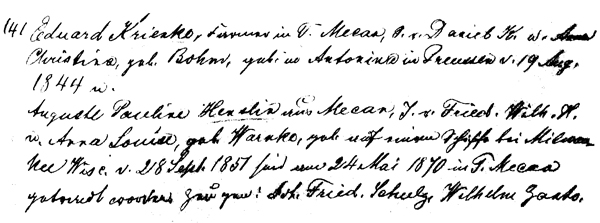 (41 Eduard Krienke, Farmer in T. Mecan, S. v. Daniel K. u. Anna
Christine, geb. Bohm, geb. in Antonin in Preussen d. 19 Aug.
1844 u.
Auguste Pauline Henslin aus Mecan, T. v. Fried. Wilh. H.
u. Anna Louise, geb. Warnke, geb auf einem Schiffe bei Milwau
kee Wisc. d. 28 Sept. 1851 sind am 24 Mai 1870 in T. Mecan
getraut worden Zeugen: Joh. Fried. Schulz, Wilhelm